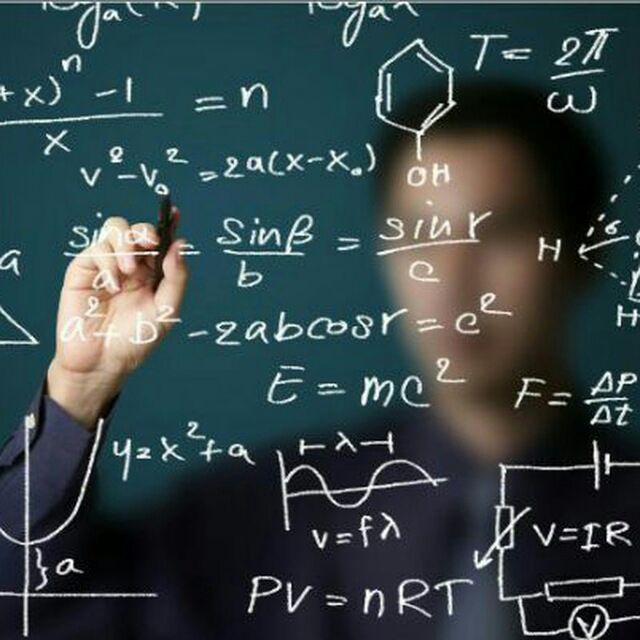 T = 2π/ω
+x)ⁿ - 1 / x = n
v² - v₀² = 2a(x - x₀)
OH
sinα/a = sinβ/b = sin r/c
a
H
H
a² + b² - 2abcosr = c²
E = mc²
F = ΔP/Δt
y = x² + a
λ
v = fλ
V = IR
a
PV = nRT
V